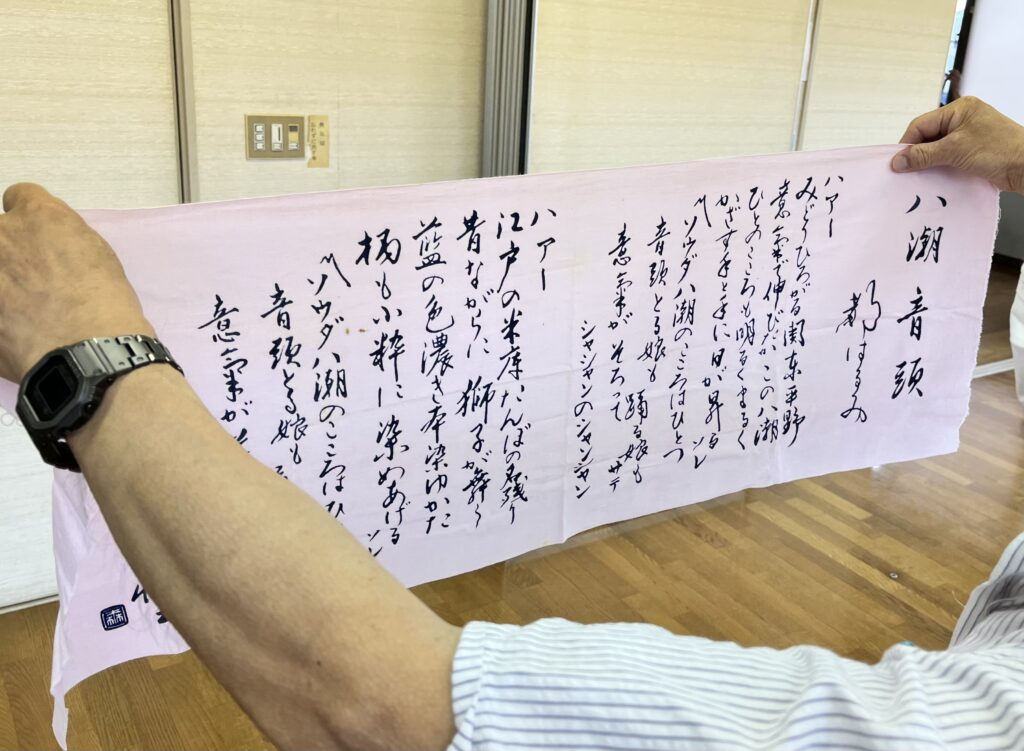 八潮音頭
都はるみ
ハアー
みどりひろがる関東平野
意気で伸びだがこの八潮
ひとのこころも明るくまるく
かざす手と手に日が昇る ソレ
ソウダ八潮のこころはひとつ
音頭とる娘も 踊る娘も サテ
意気がそろって
シャンシャンのシャンシャン
ハアー
江戸の米庫たんぼの残り
昔ながらに獅子が舞う
藍の色濃き本染ゆかた
柄も小粋に染めあげる ソレ
ソウダ八潮のこころはひ
音頭とる娘も
意気が